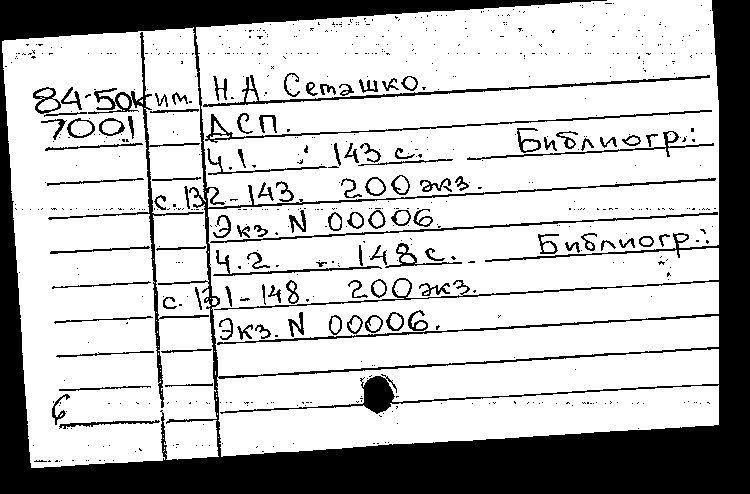 84-50ким. Н.А. Сеташко.
7001 ДСП.
Ч.1. 143 с. Библиогр.:
с. 132-143. 200 экз.
Экз. N 00006.
Ч.2. 148 с. Библиогр.:
с. 131-148. 200 экз.
Экз. N 00006.
6